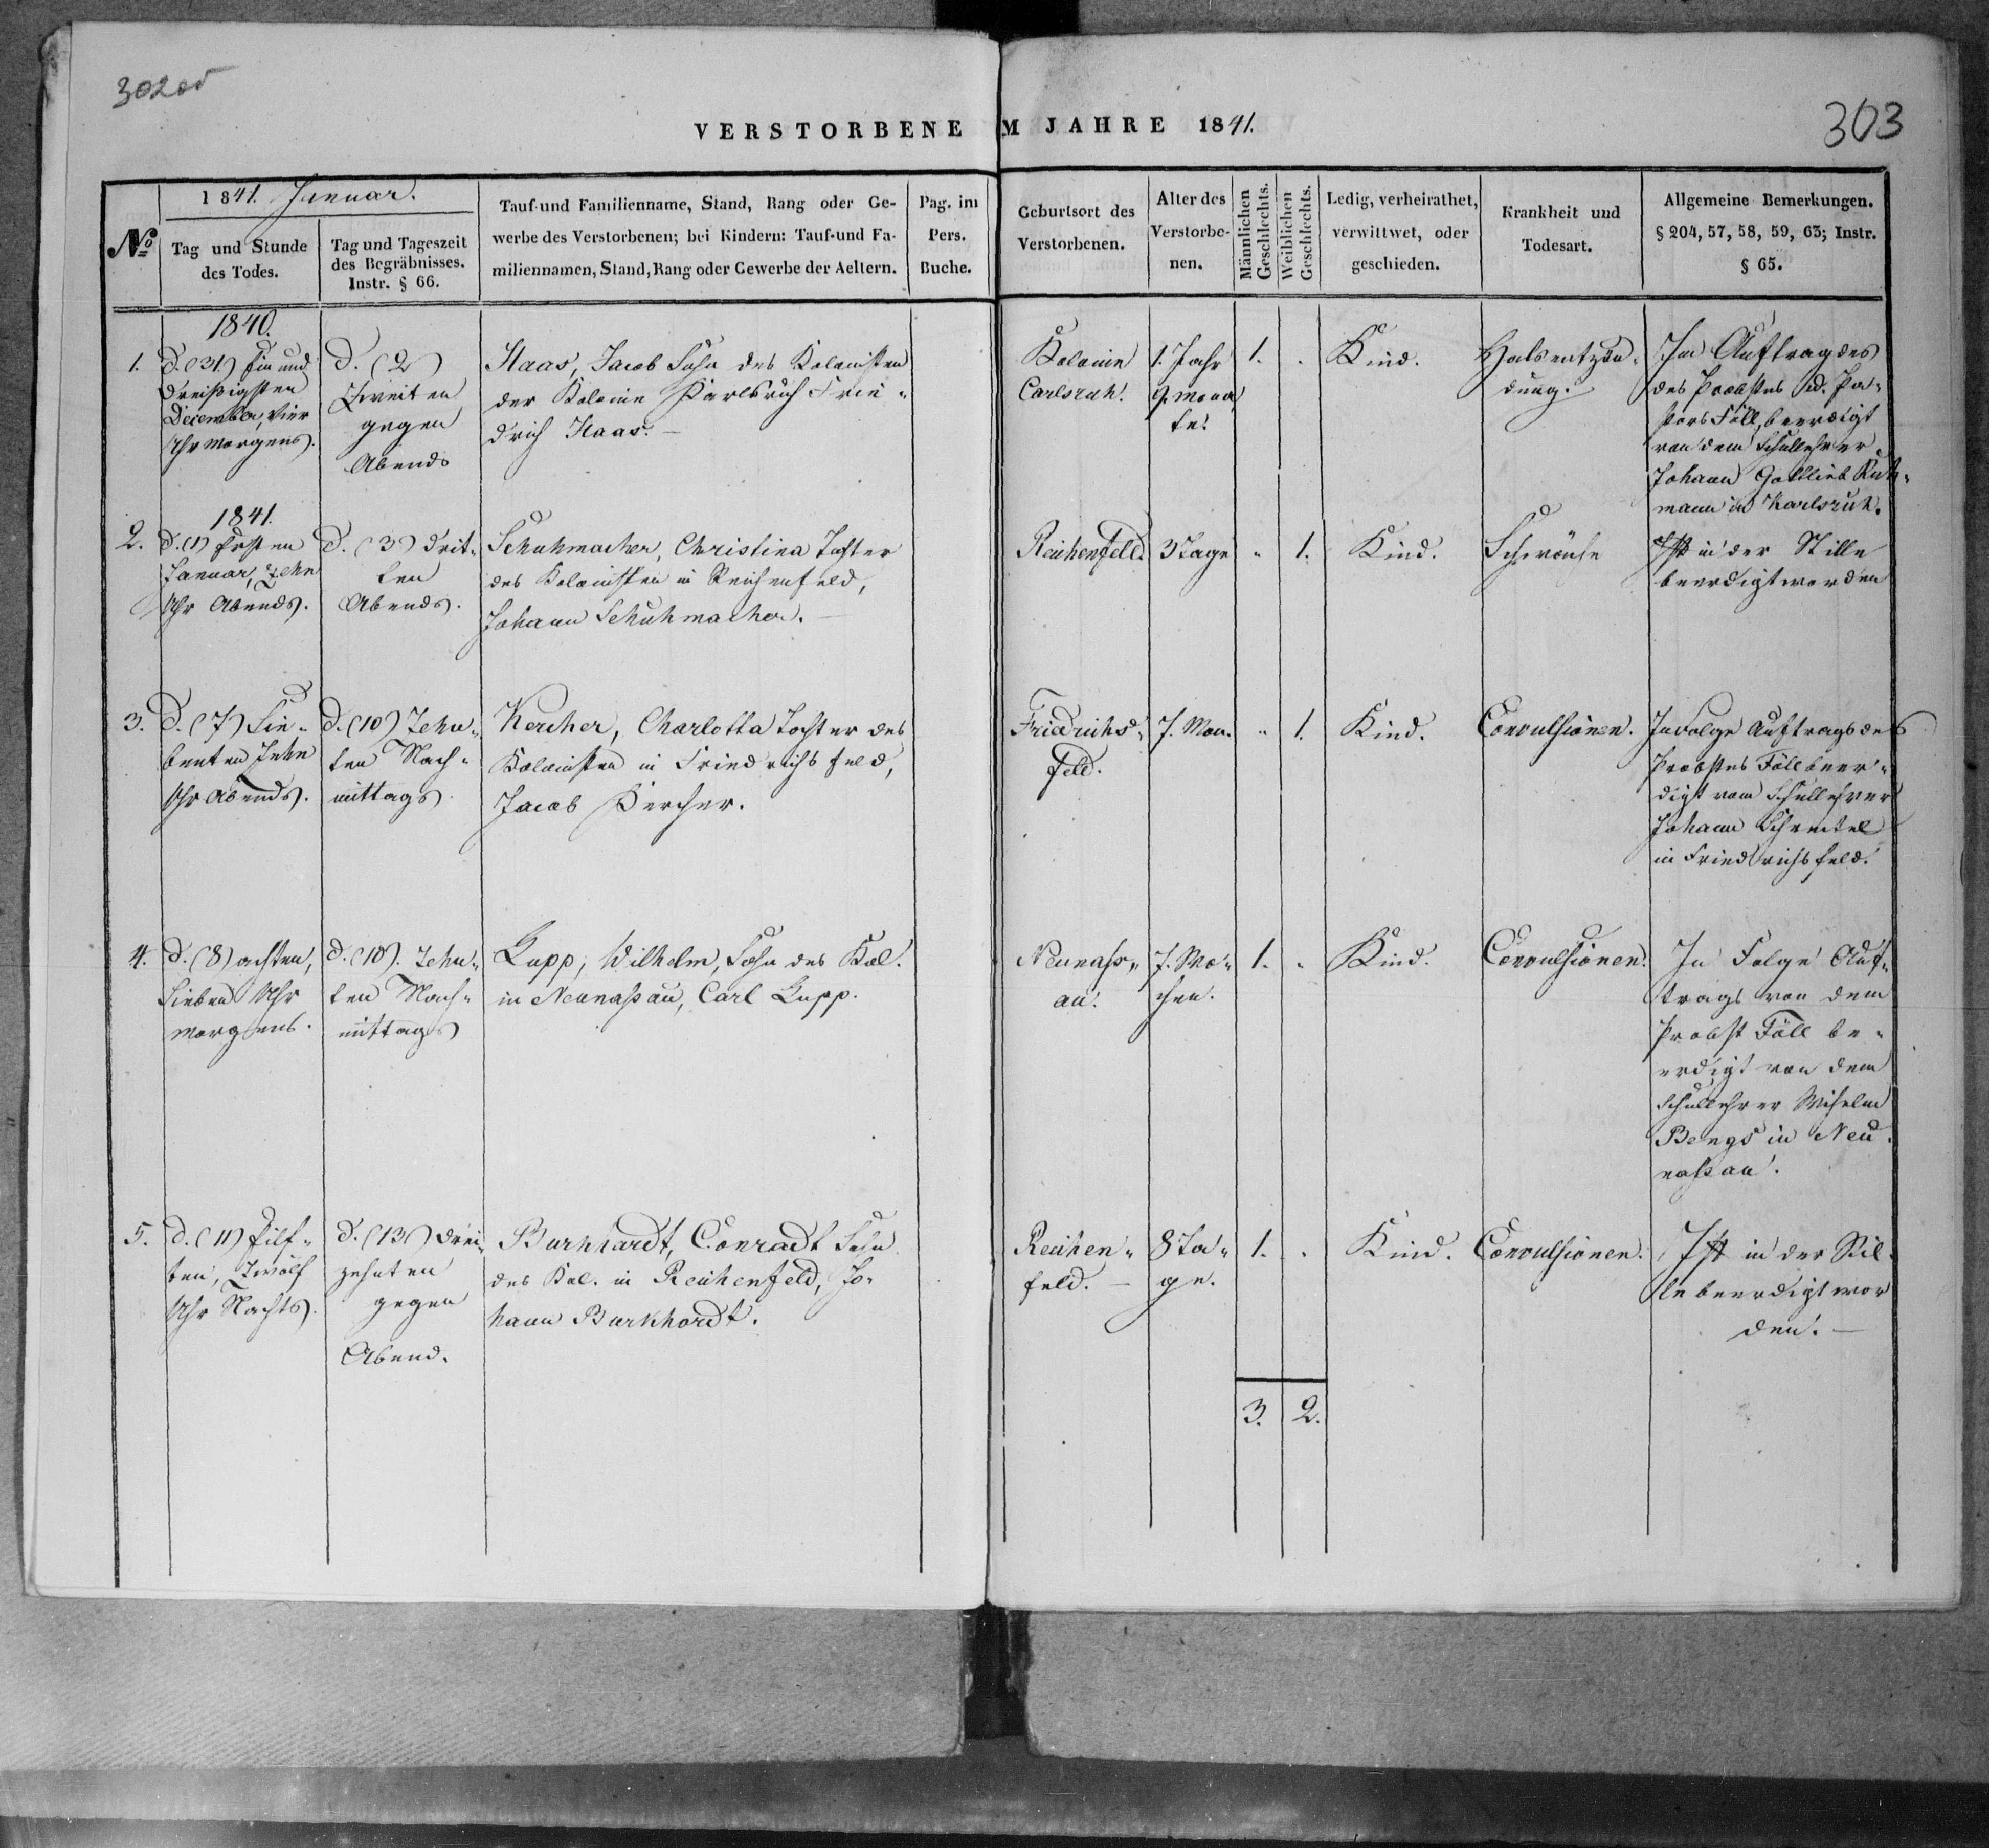 302об
303
VERSTORBENE IM JAHRE 1841.
No
1841. Januar.
Tag und Stunde
des Todes.
Tag und Tageszeit
des Begräbnisses.
Instr. § 66.
Tauf- und Familienname, Stand, Rang oder Ge-
werbe des Verstorbenen; bei Kindern: Tauf- und Fa-
miliennamen, Stand, Rang oder Gewerbe der Aeltern.
Pag. im
Pers.
Buche.
Geburtsort des
Verstorbenen.
Alter des
Verstorbe-
nen.
Männlichen
Geschlechts.
Weiblichen
Geschlechts.
Ledig, verheirathet,
verwittwet, oder
geschieden.
Krankheit und
Todesart.
Allgemeine Bemerkungen.
§ 204, 57, 58, 59, 63; Instr.
§ 65.
1.
1840.
d. (31) Ein und
dreißigsten
December, Vier
Uhr Morgens.
d. (2)
Zweiten
gegen
Abends
Haas, Jacob Sohn des Kolonisten
der Kolonie Karlsruh Frie-
drich Haas. —
Kolonie
Carlsruh.
1. Jahr
mona
te.
1.
Kind.
Halsentzün-
dung.
Im Auftrag des
des Probstes u. Pa-
stors Föll, beerdigt
von dem Schullehrer
Johann Gottlieb
mann in Karlsruh.
2.
1841.
d. (1) Ersten
Januar, Zehn
Uhr Abends.
d. (3) drit-
ten
Abends.
Schuhmacher, Christina Tochter
des Kolonisten in Reichenfeld,
Johann Schuhmacher. —
Reichenfeld.
3 Tage
" 1.
Kind.
Schwäche
Ist in der Stille
beerdigt worden
3.
d. (7) Sie-
benten Zehn
Uhr Abends.
d. (10) Zehn-
ten Nach-
mittags.
Kercher, Charlotta Tochter des
Kolonisten in Friedrichsfeld,
Jacob Kercher.
Friedrichs-
feld.
7. Mon.
" 1.
Kind.
Convulsionen.
Infolge Auftrags des
Probstes Föll beer-
digt vom Schullehrer
Johann
in Friedrichsfeld.
4.
d. (8) achten,
Sieben Uhr
Morgens.
d. (10). Zehn-
ten Nach-
mittags
Lupp, Wilhelm, Sohn des Kol.
in Neunaßau, Carl Lupp.
Neunaß-
au.
7. Wo-
chen.
1.
Kind.
Convulsionen.
In Folge Auf-
trags von dem
Probst Föll be-
erdigt von dem
Schullehrer Wihelm
Bengs in Neu-
naßau.
5.
d. (11) Eilf-
ten, Zwölf
Uhr Nachts.
d. (13) drei-
zehnten
gegen
Abend.
Burkhardt, Conradt Sohn
des Kol. in Reichenfeld, Jo-
hann Burkhardt.
Reichen-
feld. —
8 Ta-
ge.
1.
Kind.
Convulsionen.
Ist in der Stil-
le beerdigt wor
den. —
3. 2.